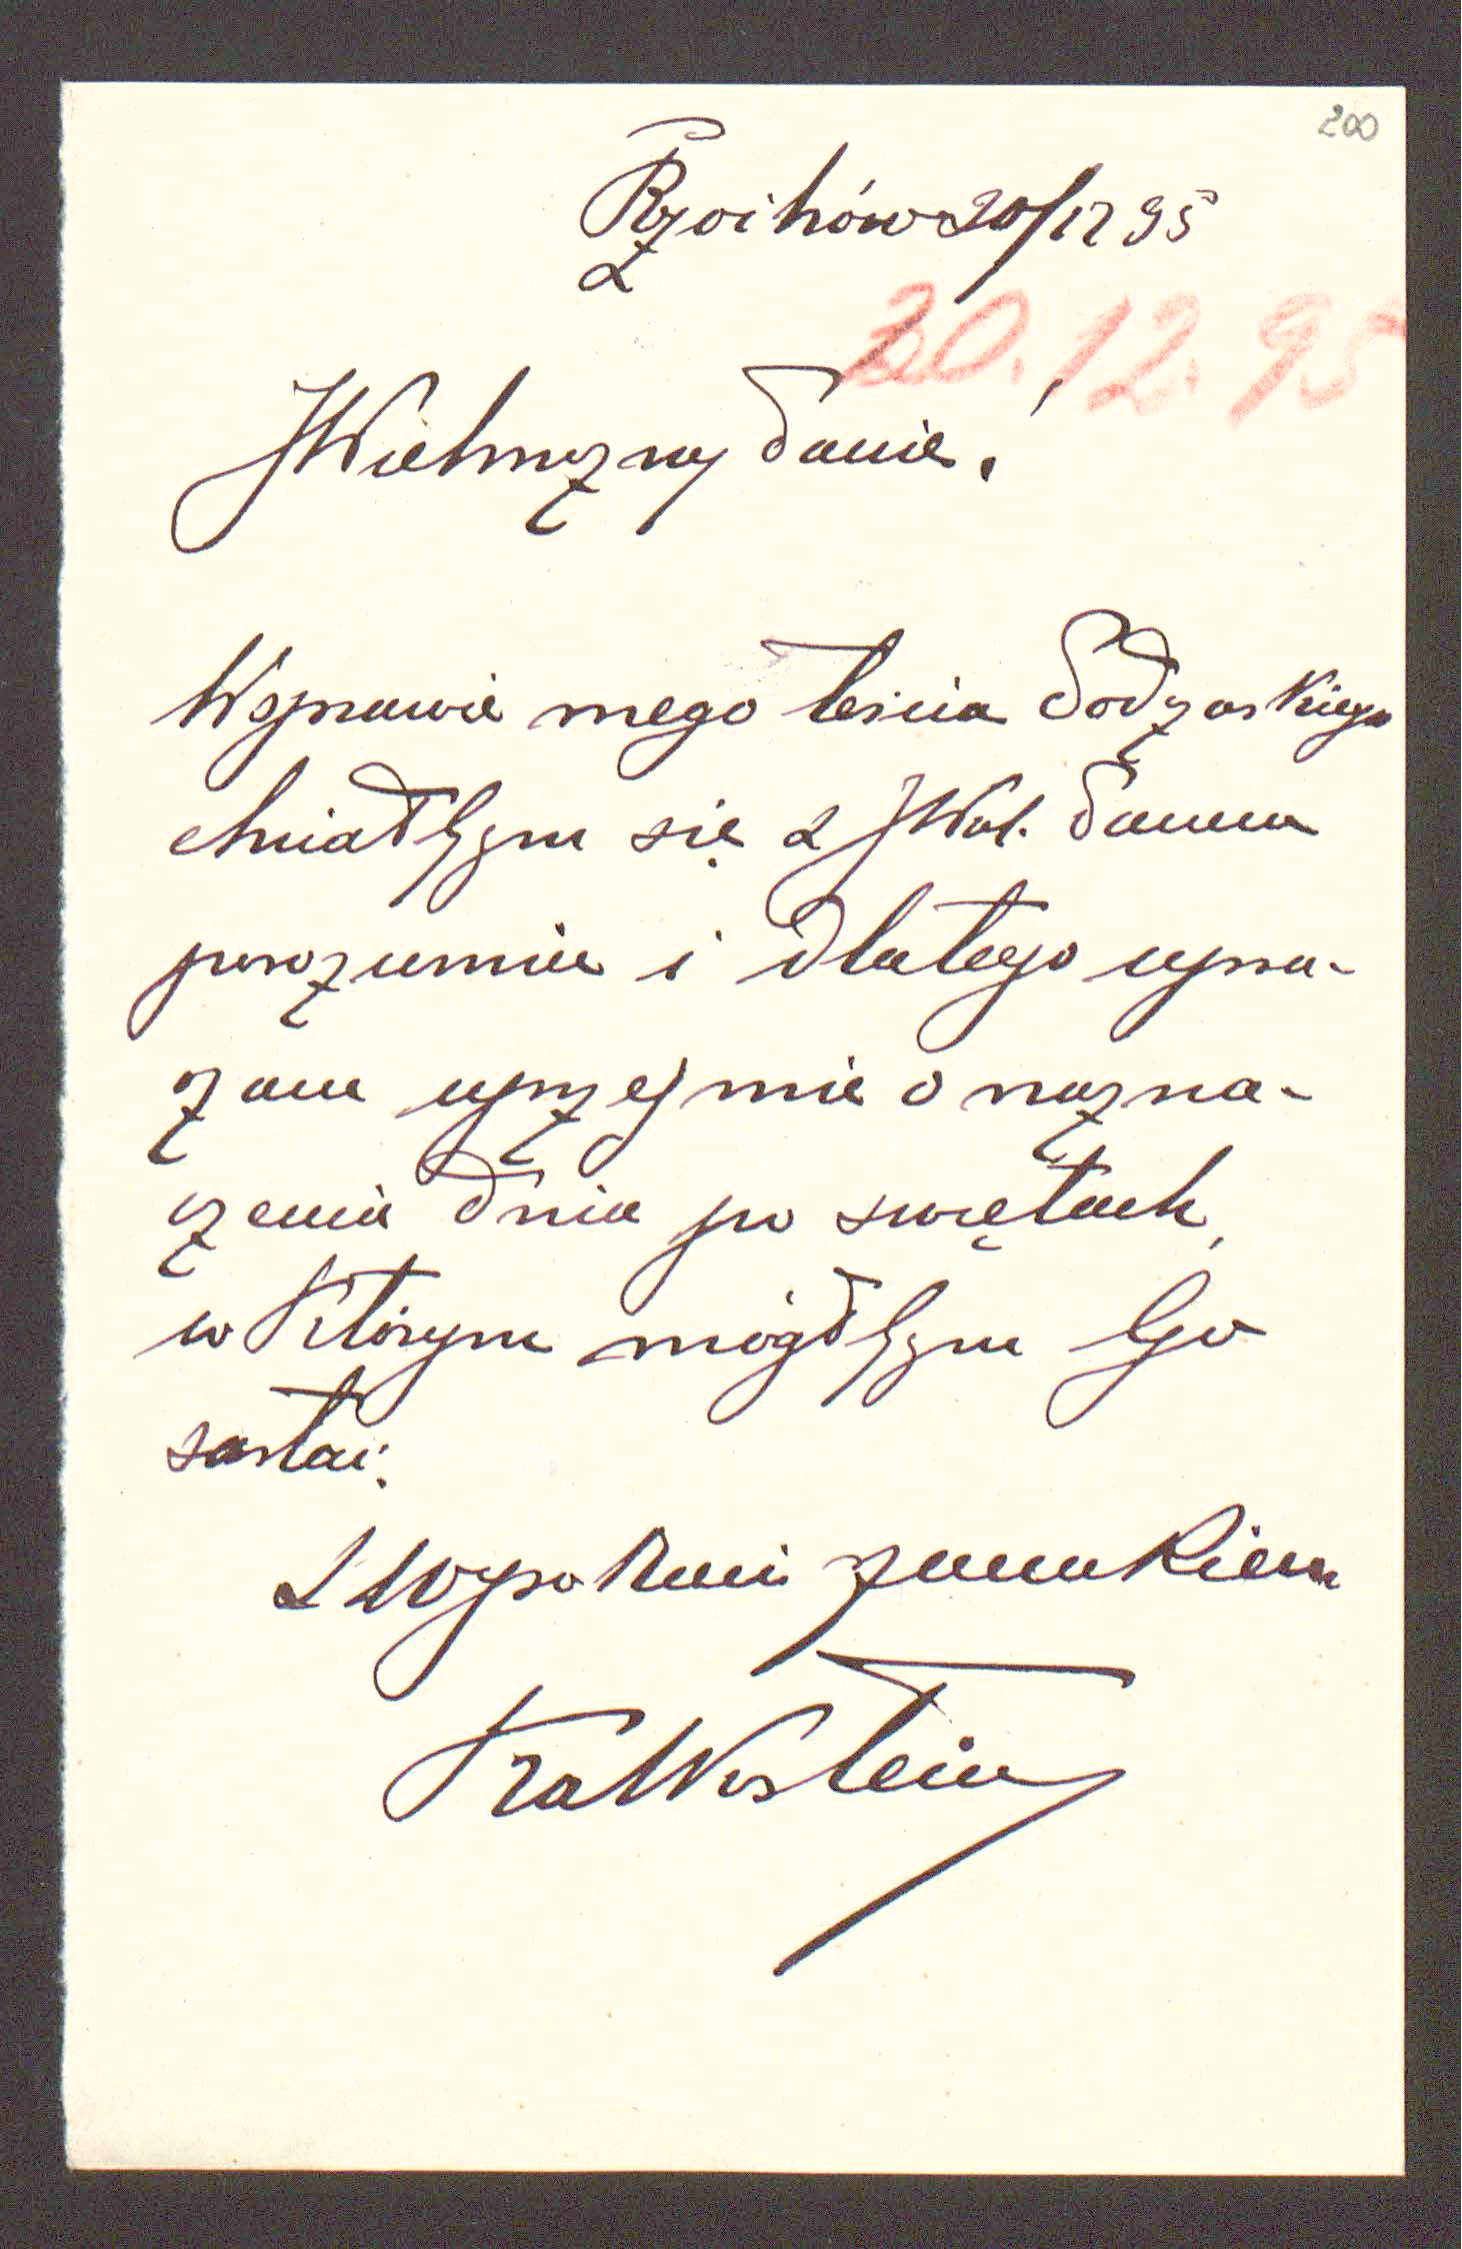 200
Rzochów 20/12 95
20.12.95
JWielmożny Panie!
W sprawie mego teścia
chciałbym się z JWol. Panem
porozumieć i dlatego upra-
szam uprzejmie o nazna-
czenie dnia po świętach,
w którym mógłbym Go
zastać.
Z wysokim szacunkiem